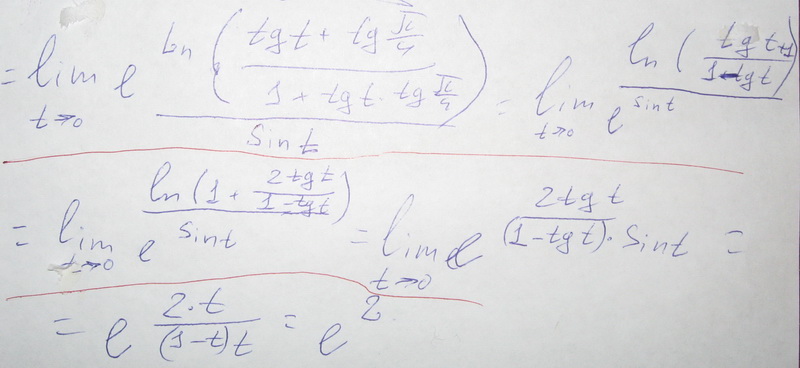 = lim_{t→0} e^{ln((tg t + tg π/4)/(1 + tg t · tg π/4))/sin t} = lim_{t→0} e^{ln((tg t+1)/(1-tg t))/sin t}
= lim_{t→0} e^{ln(1 + 2tg t/(1-tg t))/sin t} = lim_{t→0} e^{2tg t/((1-tg t)·sin t)} =
= e^{2·t/((1-t)t)} = e^2